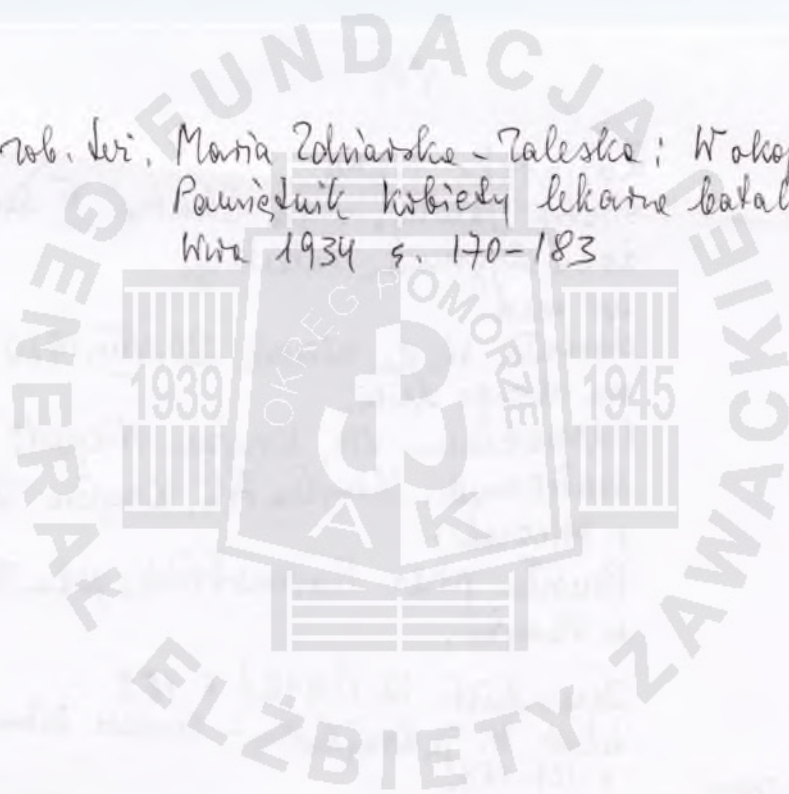 zob. też. Maria Zdziarska-Zaleska: W okop
Pamiętnik kobiety lekarza batal
W-wa 1934 s. 170-183
FUNDACJA
GENERAŁ ELŻBIETY ZAWACKIEJ
OKRĘG POMORZE
1939
1945
A K